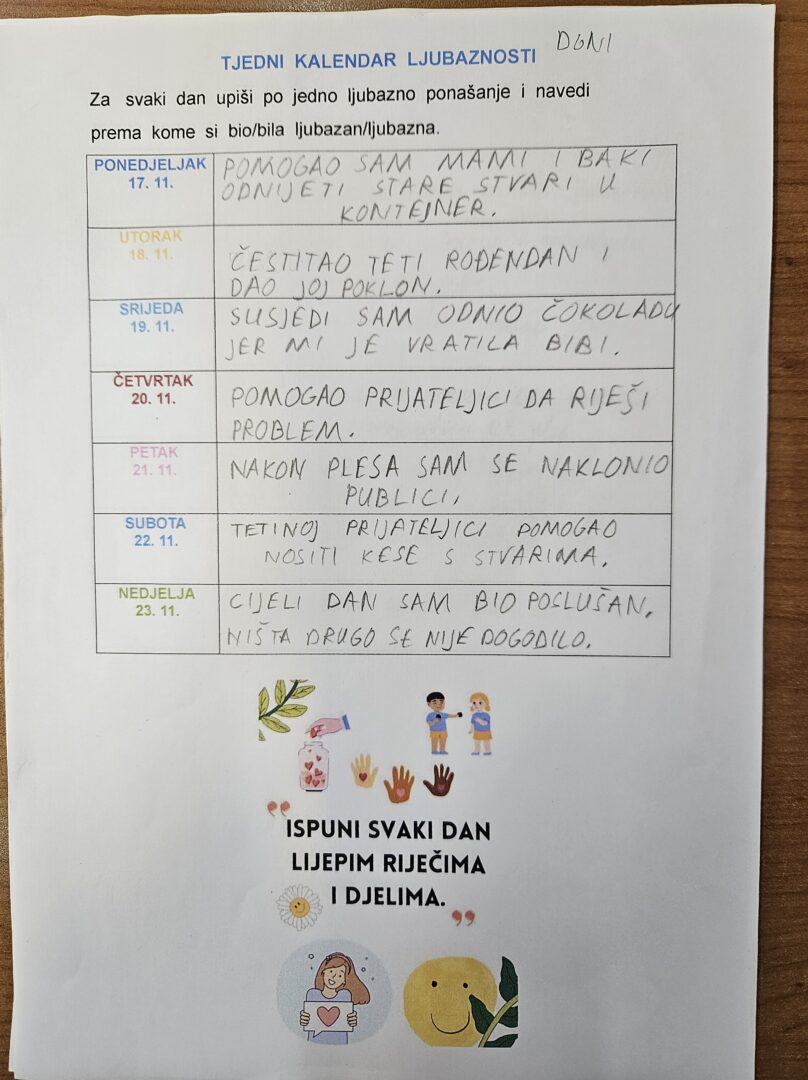 DONI
TJEDNI KALENDAR LJUBAZNOSTI
Za svaki dan upiši po jedno ljubazno ponašanje i navedi
prema kome si bio/bila ljubazan/ljubazna.
PONEDJELJAK
17. 11.
POMOGAO SAM MAMI I BAKI
ODNIJETI STARE STVARI U
KONTEJNER.
UTORAK
18. 11.
ČESTITAO TETI ROĐENDAN I
DAO JOJ POKLON.
SRIJEDA
19. 11.
SUSJEDI SAM ODNIO ČOKOLADU
JER MI JE VRATILA BIBI.
ČETVRTAK
20. 11.
POMOGAO PRIJATELJICI DA RIJEŠI
PROBLEM.
PETAK
21. 11.
NAKON PLESA SAM SE NAKLONIO
PUBLICI,
SUBOTA
22. 11.
TETINOJ PRIJATELJICI POMOGAO
NOSITI KESE S STVARIMA.
NEDJELJA
23. 11.
CIJELI DAN SAM BIO POSLUŠAN.
NIŠTA DRUGO SE NIJE DOGODILO.
"ISPUNI SVAKI DAN
LIJEPIM RIJEČIMA
I DJELIMA."